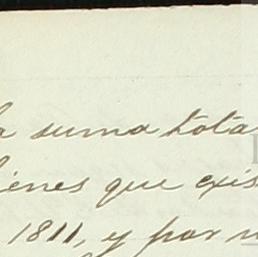 la suma tota
bienes que exis
1811, y por